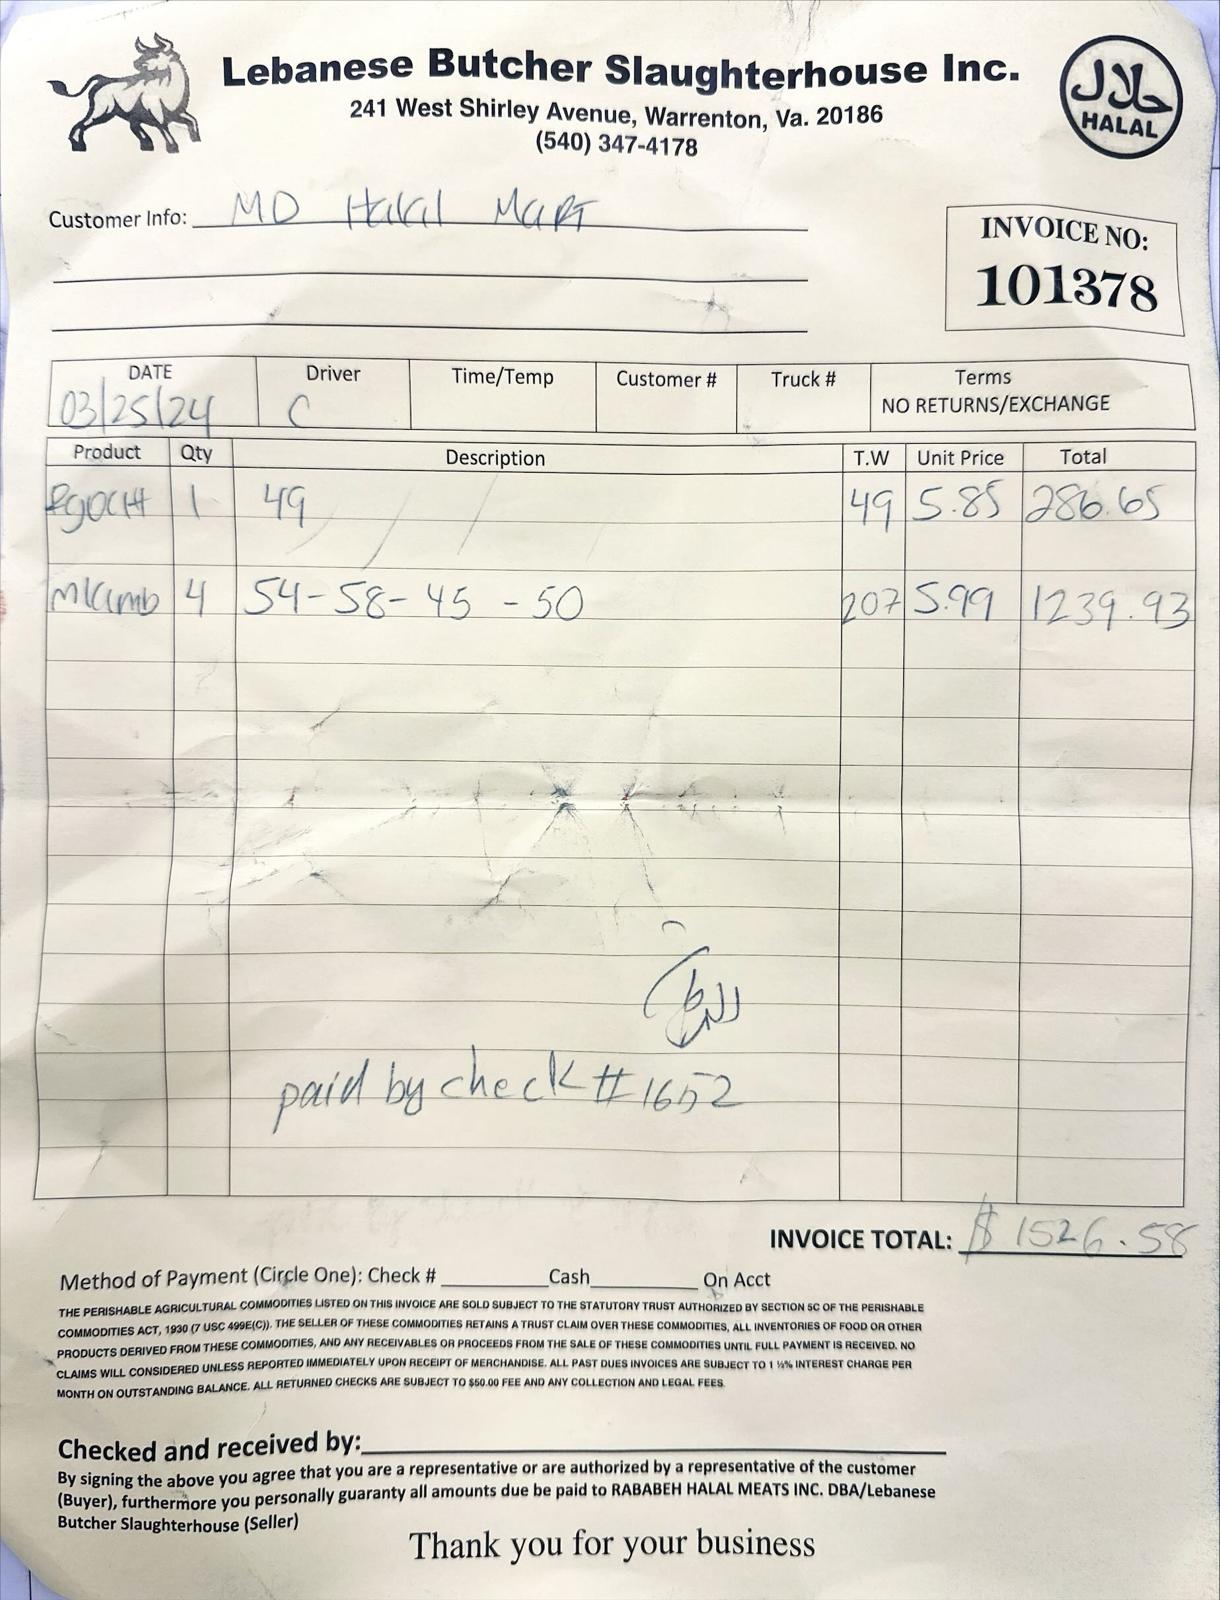 Lebanese Butcher Slaughterhouse Inc.
241 West Shirley Avenue, Warrenton, Va. 20186
(540) 347-4178
حلال
HALAL
Customer Info: MD Halal Mart
INVOICE NO:
101378
DATE Driver Time/Temp Customer # Truck # Terms
03/25/24 C NO RETURNS/EXCHANGE
Product Qty Description T.W Unit Price Total
1 49 49 5.85 286.65
mlamb 4 54-58-45 -50 207 5.99 1239.93
paid by check #1652
INVOICE TOTAL: $ 1526.58
Method of Payment (Circle One): Check # Cash On Acct
THE PERISHABLE AGRICULTURAL COMMODITIES LISTED ON THIS INVOICE ARE SOLD SUBJECT TO THE STATUTORY TRUST AUTHORIZED BY SECTION 5C OF THE PERISHABLE
COMMODITIES ACT, 1930 (7 USC 499E(C)). THE SELLER OF THESE COMMODITIES RETAINS A TRUST CLAIM OVER THESE COMMODITIES, ALL INVENTORIES OF FOOD OR OTHER
PRODUCTS DERIVED FROM THESE COMMODITIES, AND ANY RECEIVABLES OR PROCEEDS FROM THE SALE OF THESE COMMODITIES UNTIL FULL PAYMENT IS RECEIVED. NO
CLAIMS WILL CONSIDERED UNLESS REPORTED IMMEDIATELY UPON RECEIPT OF MERCHANDISE. ALL PAST DUES INVOICES ARE SUBJECT TO 1 ½% INTEREST CHARGE PER
MONTH ON OUTSTANDING BALANCE. ALL RETURNED CHECKS ARE SUBJECT TO $50.00 FEE AND ANY COLLECTION AND LEGAL FEES.
Checked and received by:
By signing the above you agree that you are a representative or are authorized by a representative of the customer
(Buyer), furthermore you personally guaranty all amounts due be paid to RABABEH HALAL MEATS INC. DBA/Lebanese
Butcher Slaughterhouse (Seller)
Thank you for your business